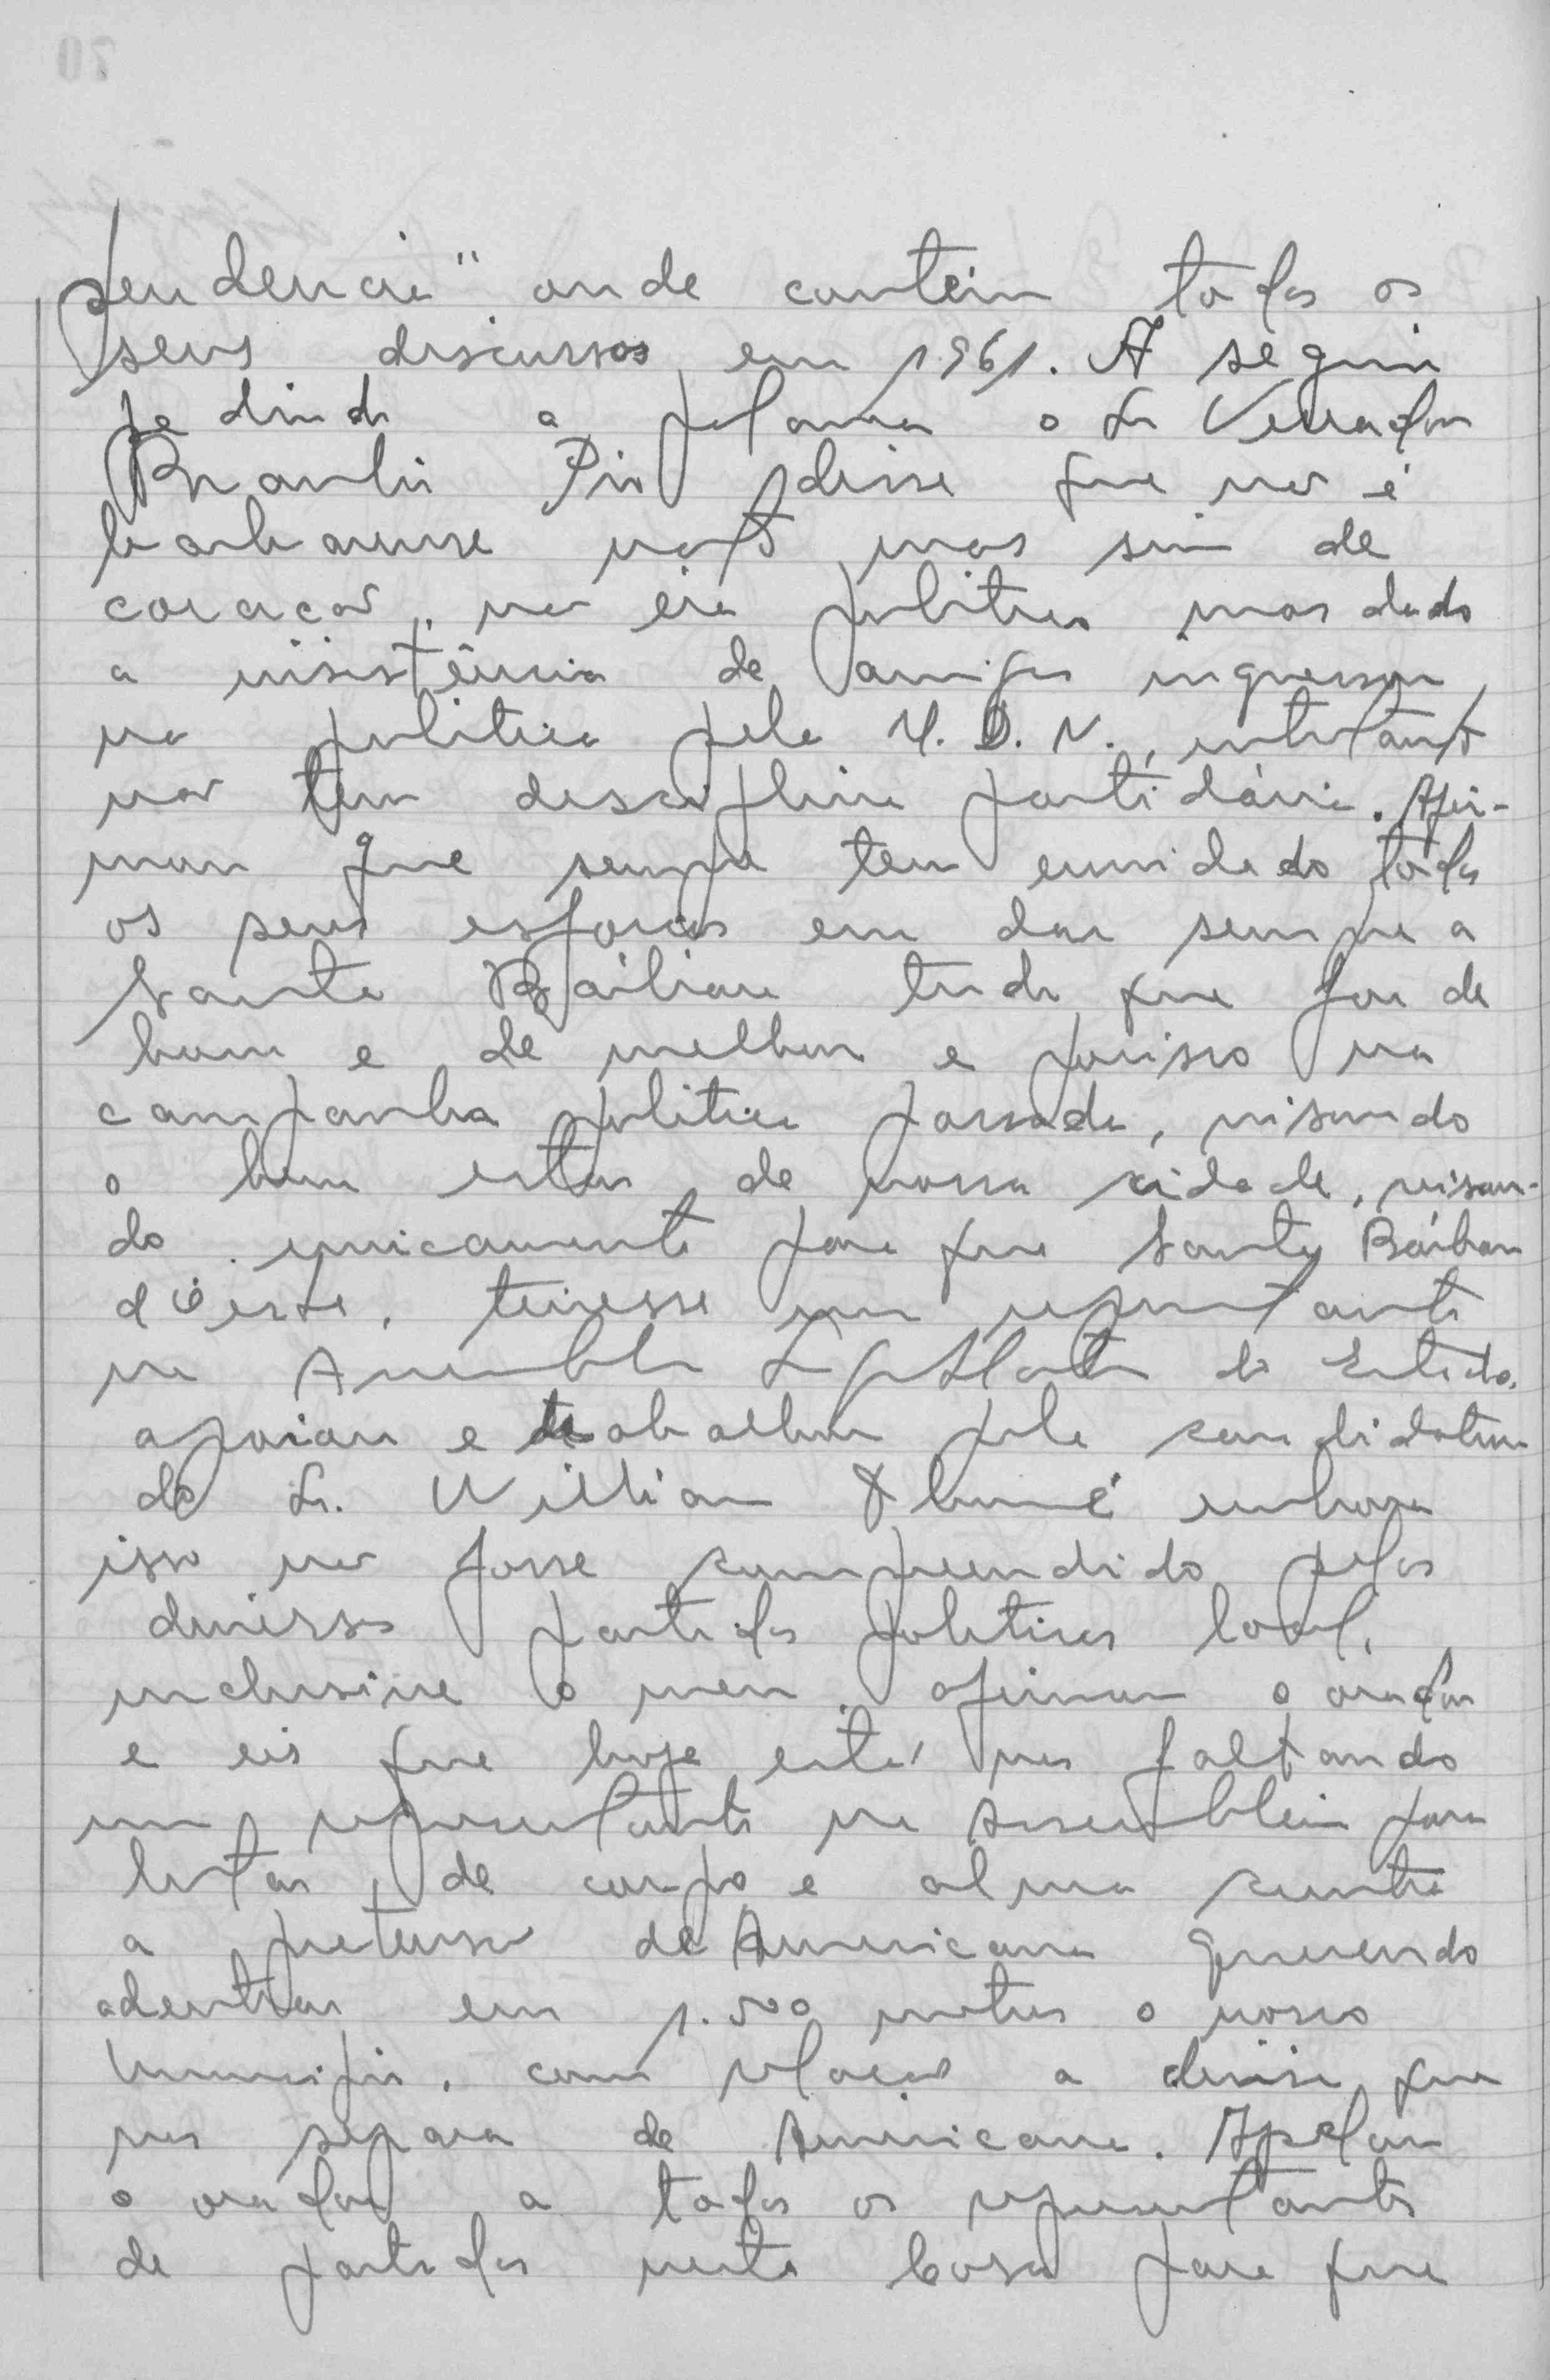 pendencia" onde contém todos os
seus discursos em 1961. A seguir
pedindo a palavra o Sr Vereador
Braulio Pio disse que não é
barbarense nato mas sim de
coração, não era politico mas dado
a insistência de amigos ingressou
na politica pela U. D. N., entretanto
não tem disciplina partidária. Afir-
mou que sempre tem envidado todos
os seus esforços em dar sempre a
Santa Bárbara tudo que for de
bom e de melhor e porisso na
campanha politica passada, visando
o bem estar de nossa cidade, visan-
do unicamente para que Santa Bárbara
d'oeste, tivesse um representante
na Assembleia Legislativa do Estado,
apoiou e trabalhou pela candidatura
do Sr. Willian embora
isso não fosse compreendido pelos
diversos partidos politicos local,
inclusive o meu, afirmou o orador
e eis que hoje está nos faltando
um representante na Assembléia para
lutar, de corpo e alma contra
a pretensão de Americana querendo
adentrar em 1.500 metros o nosso
Municipio, com relação a divisa que
nos separa de Americana. Apelou
o orador a todos os representantes
de partidos nesta Casa para que